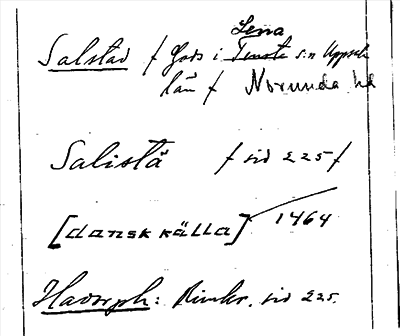 Lena
Salstad f Gods i Tensta s:n Uppsala
län f Norunda hd
Salistä f sid 225 f
[dansk källa] 1464
Hadorph: Rimkr. sid 225.